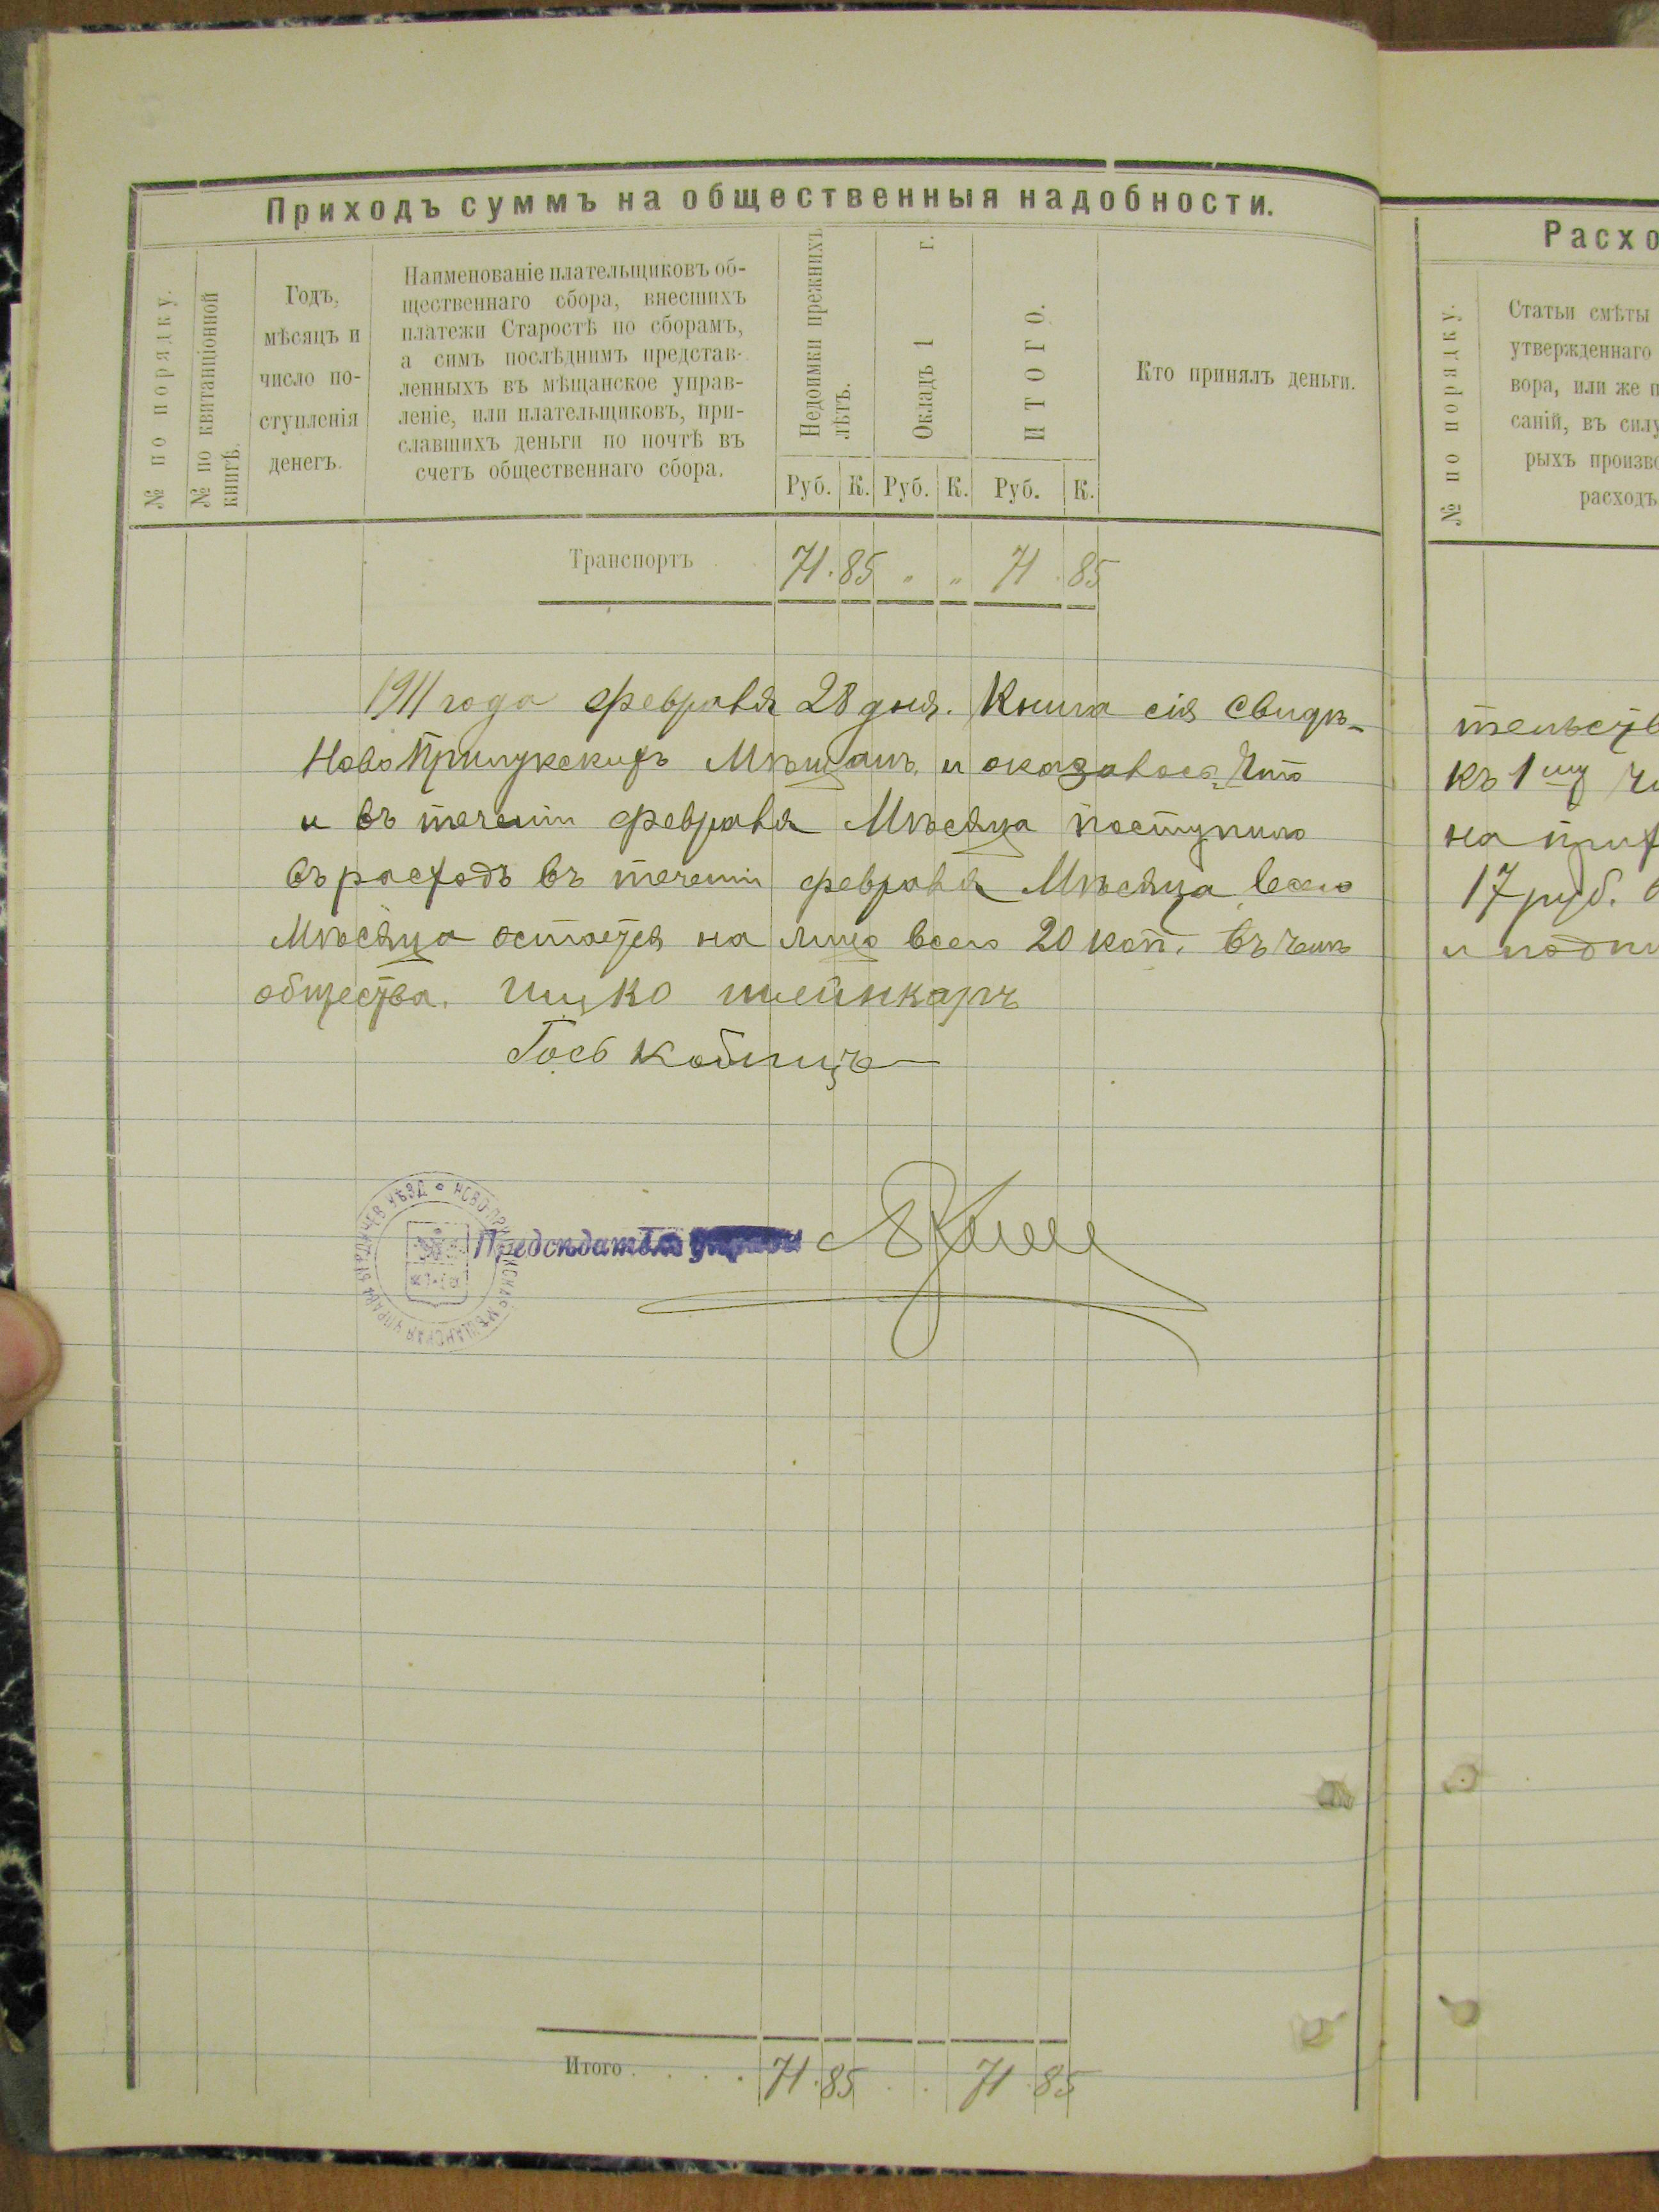 Приходъ суммъ на общественныя надобности.
№ по порядку.
№ по квитанціонной
книгѣ.
Годъ,
мѣсяцъ и
число по-
ступленія
денегъ.
Наименованіе плательщиковъ об-
щественнаго сбора, внесшихъ
платежи Старостѣ по сборамъ,
а симъ послѣднимъ представ-
ленныхъ въ мѣщанское управ-
леніе, или плательщиковъ, при-
славшихъ деньги по почтѣ въ
счетъ общественнаго сбора.
Недоимки прежнихъ
лѣтъ.
Окладъ 1 г.
ИТОГО.
Кто принялъ деньги.
Руб. К. Руб. К. Руб. К.
Транспортъ 71 . 85 " " 71 . 85
1911 года февраля 28 дня. Книга сія свидѣ-
Ново Прилукскихъ Мѣщанъ и оказалось что
и въ теченіи февраля Мѣсяца поступило
въ расходъ въ теченіи февраля Мѣсяца всего
Мѣсяца остается на лицо всего 20 коп. въ чемъ
общества. Ицко
Предсѣдатель
НОВОПРИЛУКСКАЯ МѢЩАНСКАЯ УПРАВА БЕРДИЧЕВ УѢЗД
Итого . . . . 71 . 85 . . 71 . 85
Расхо
№ по порядку.
Статьи смѣты
утвержденнаго
вора, или же п
саній, въ силу
рыхъ произво
расходъ
тельств
къ 1му
на прих
17 руб.
и подпи